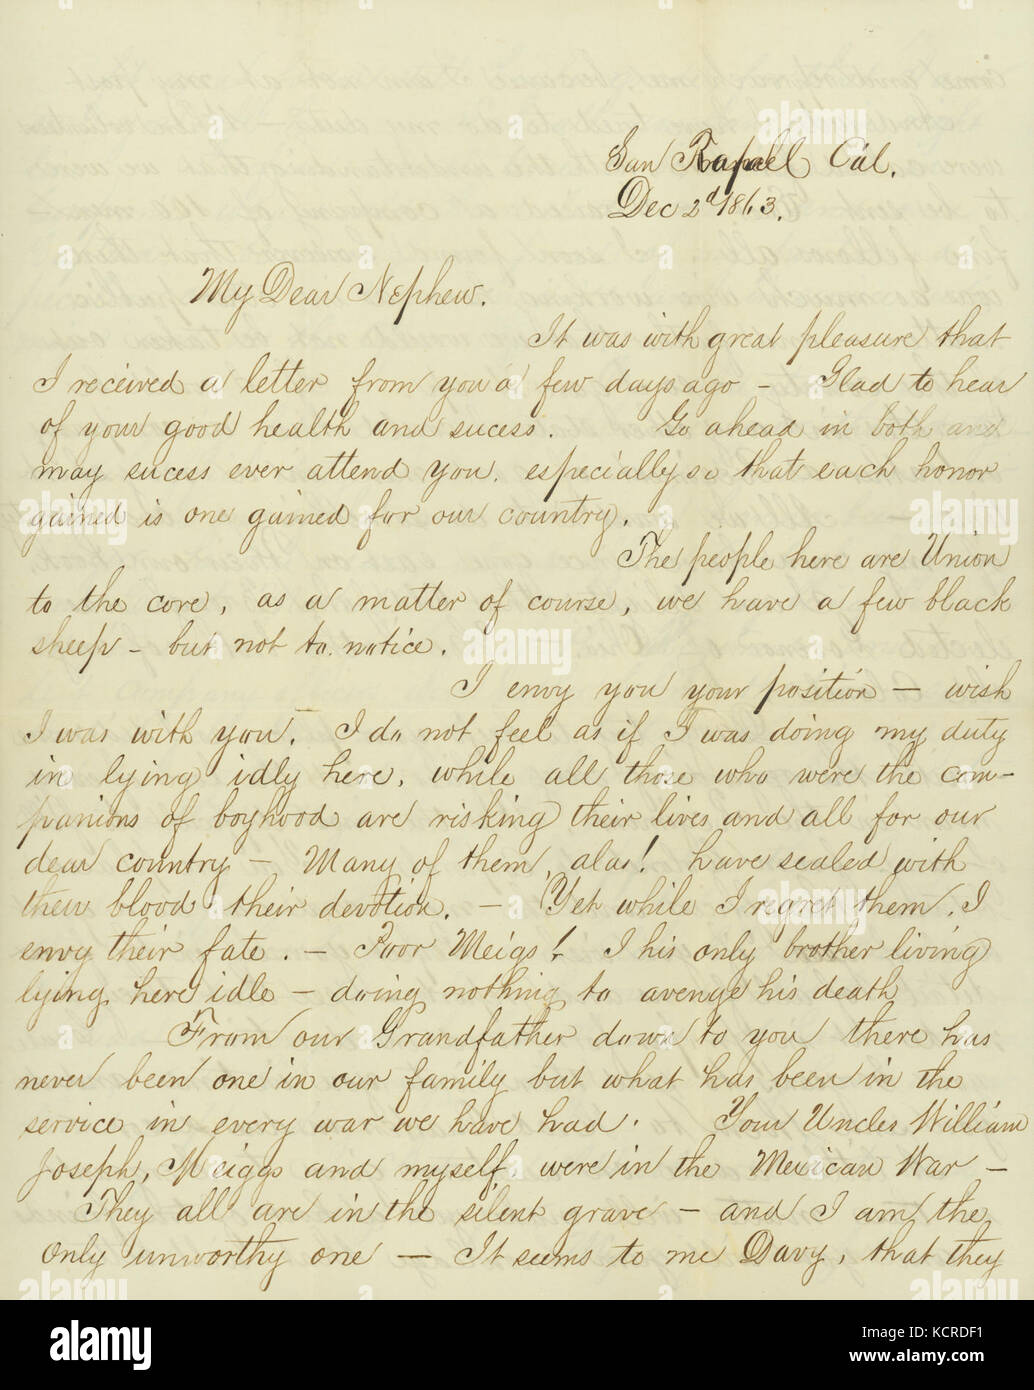 San Rafaell Cal.
Dec 2d 1863.
My Dear Nephew.
It was with great pleasure that
I received a letter from you a few days ago - Glad to hear
of your good health and sucess. Go ahead in both and
may sucess ever attend you, especially so that each honor
gained is one gained for our country.
The people here are Union
to the core, as a matter of course, we have a few black
sheep - but not to notice.
I envy you your position - wish
I was with you. I do not feel as if I was doing my duty
in lying idly here, while all those who were the com-
panions of boyhood are risking their lives and all for our
dear country - Many of them, alas! have sealed with
their blood their devotion. - Yet while I regret them, I
envy their fate. - Poor Meigs! I his only brother living
lying here idle - doing nothing to avenge his death
From our Grandfather down to you there has
never been one in our family but what has been in the
service in every war we have had. Your Uncles William
Joseph, Meiggs and myself, were in the Mexican War -
They all are in the silent grave - and I am the
only unworthy one - It seems to me Davy, that they
alamy
Image ID: KCRDF1
www.alamy.com